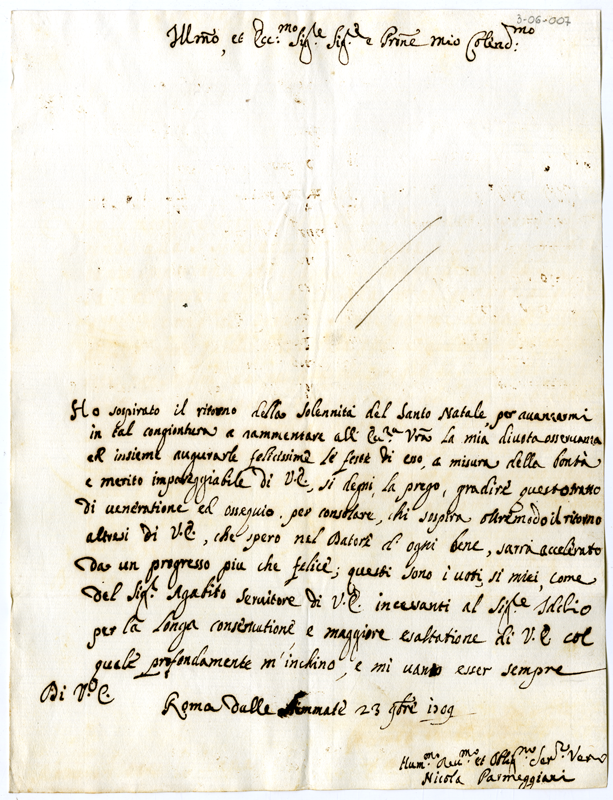 3-06-007
Illmo, et Ecc.mo Sig.re Sig.re e Prone mio Colend.mo
Ho sospirato il ritorno della Solennità del Santo Natale, per auanzarmi
in tal congiontura a rammentare all' Ecc.za Vra la mia diuota osseruanza
et insieme augurarle felicissime le feste di esso, a misura della bontà
e merito impareggiabile di V.E., si degni, la prego, gradire questo tratto
di veneratione ed ossequio per consolare, chi sospira oltremodo il ritorno
altresi di V.E., che spero nel Datore d'ogni bene, sarrà accelerato
da un progresso piu che felice; questi sono i uoti, si miei, come
del Sig.r Agabito Seruitore di V.E. incessanti al Sig.re Iddio
per la longa conseruatione e maggiore esaltatione di V.E. col
quale profondamente m'inchino, e mi uanto esser sempre
Di V. E.
Roma dalle Stimmate 23 Xbre 1709
Hum.mo Deu.mo et Oblig.mo Ser.re Vero
Nicola Parmeggiani